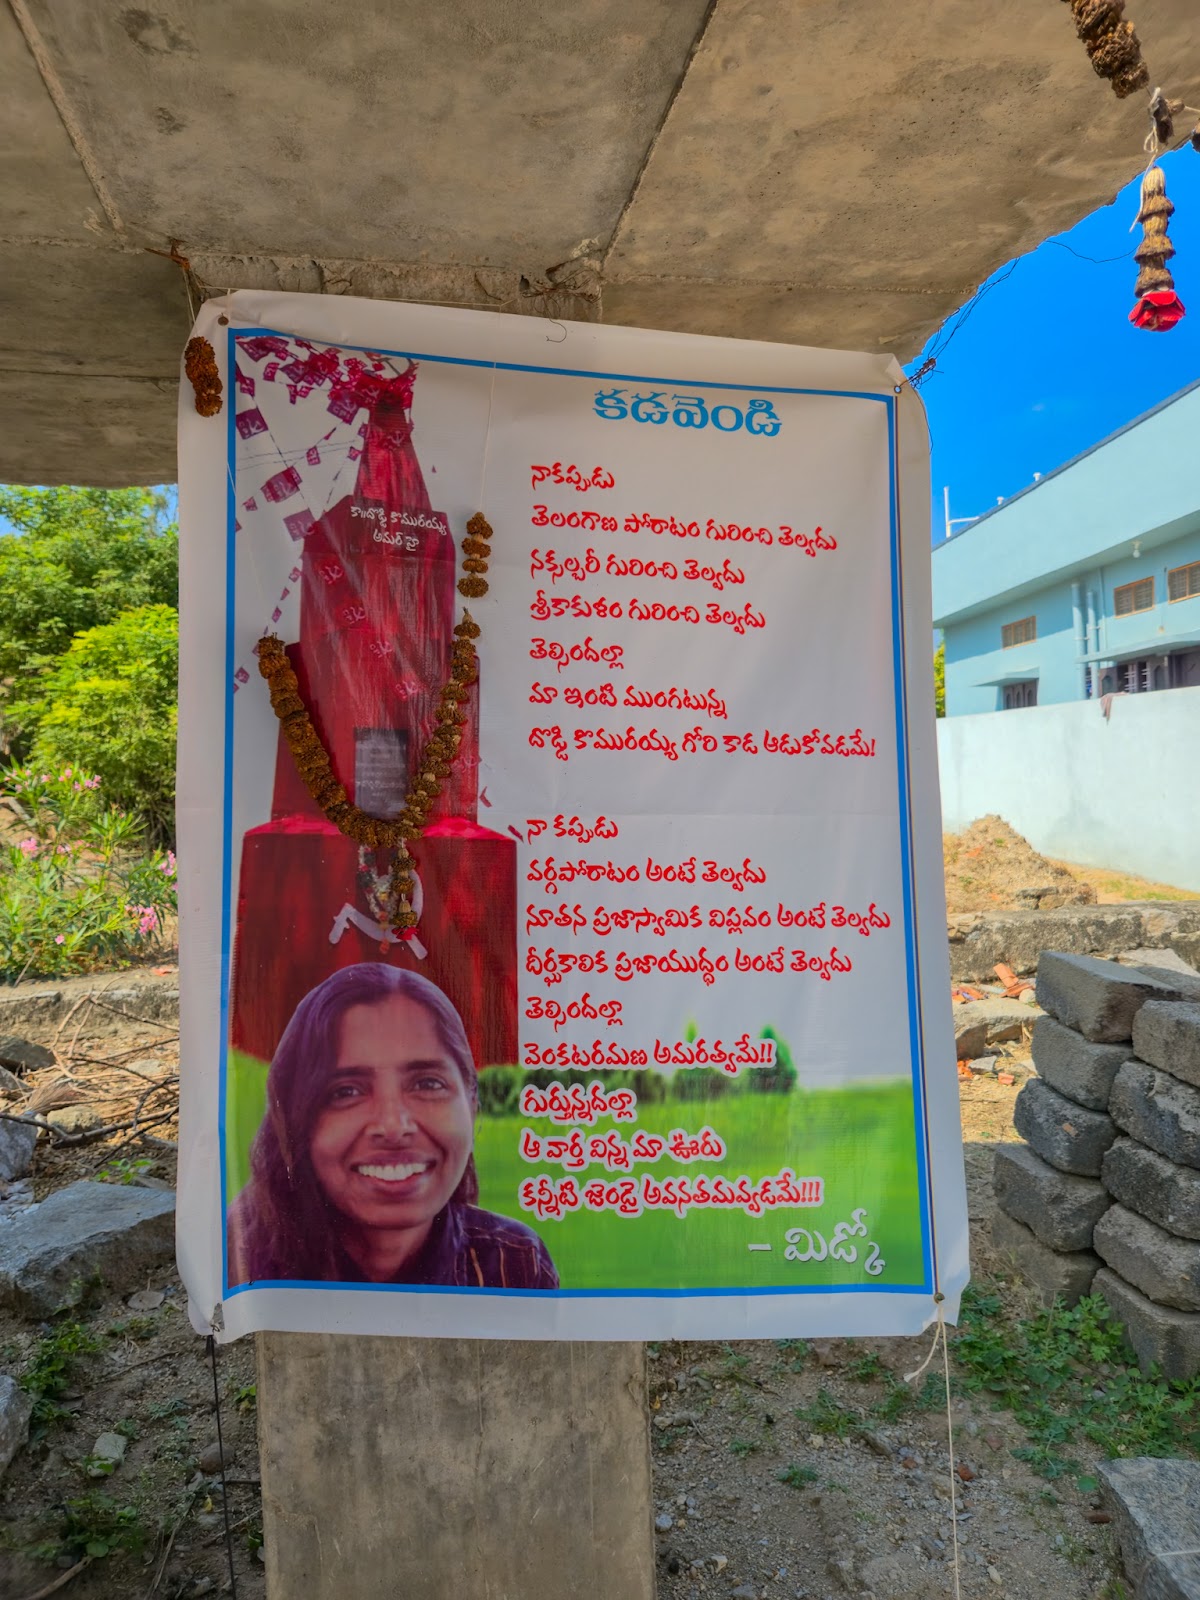 కడవెండి
కా॥దొడ్డి కొమురయ్య
అమర్ హై
నాకప్పుడు
తెలంగాణ పోరాటం గురించి తెల్వదు
నక్సల్బరీ గురించి తెల్వదు
శ్రీకాకుళం గురించి తెల్వదు
తెల్సిందల్లా
మా ఇంటి ముంగటున్న
దొడ్డి కొమురయ్య గోరి కాడ ఆడుకోవడమే!
నా కప్పుడు
వర్గపోరాటం అంటే తెల్వదు
నూతన ప్రజాస్వామిక విప్లవం అంటే తెల్వదు
దీర్ఘకాలిక ప్రజాయుద్ధం అంటే తెల్వదు
తెల్సిందల్లా
వెంకటరమణ అమరత్వమే!!
గుర్తున్నదల్లా
ఆ వార్త విన్న మా ఊరు
కన్నీటి జెండై అవనతమవ్వడమే!!!
– మిడ్కో